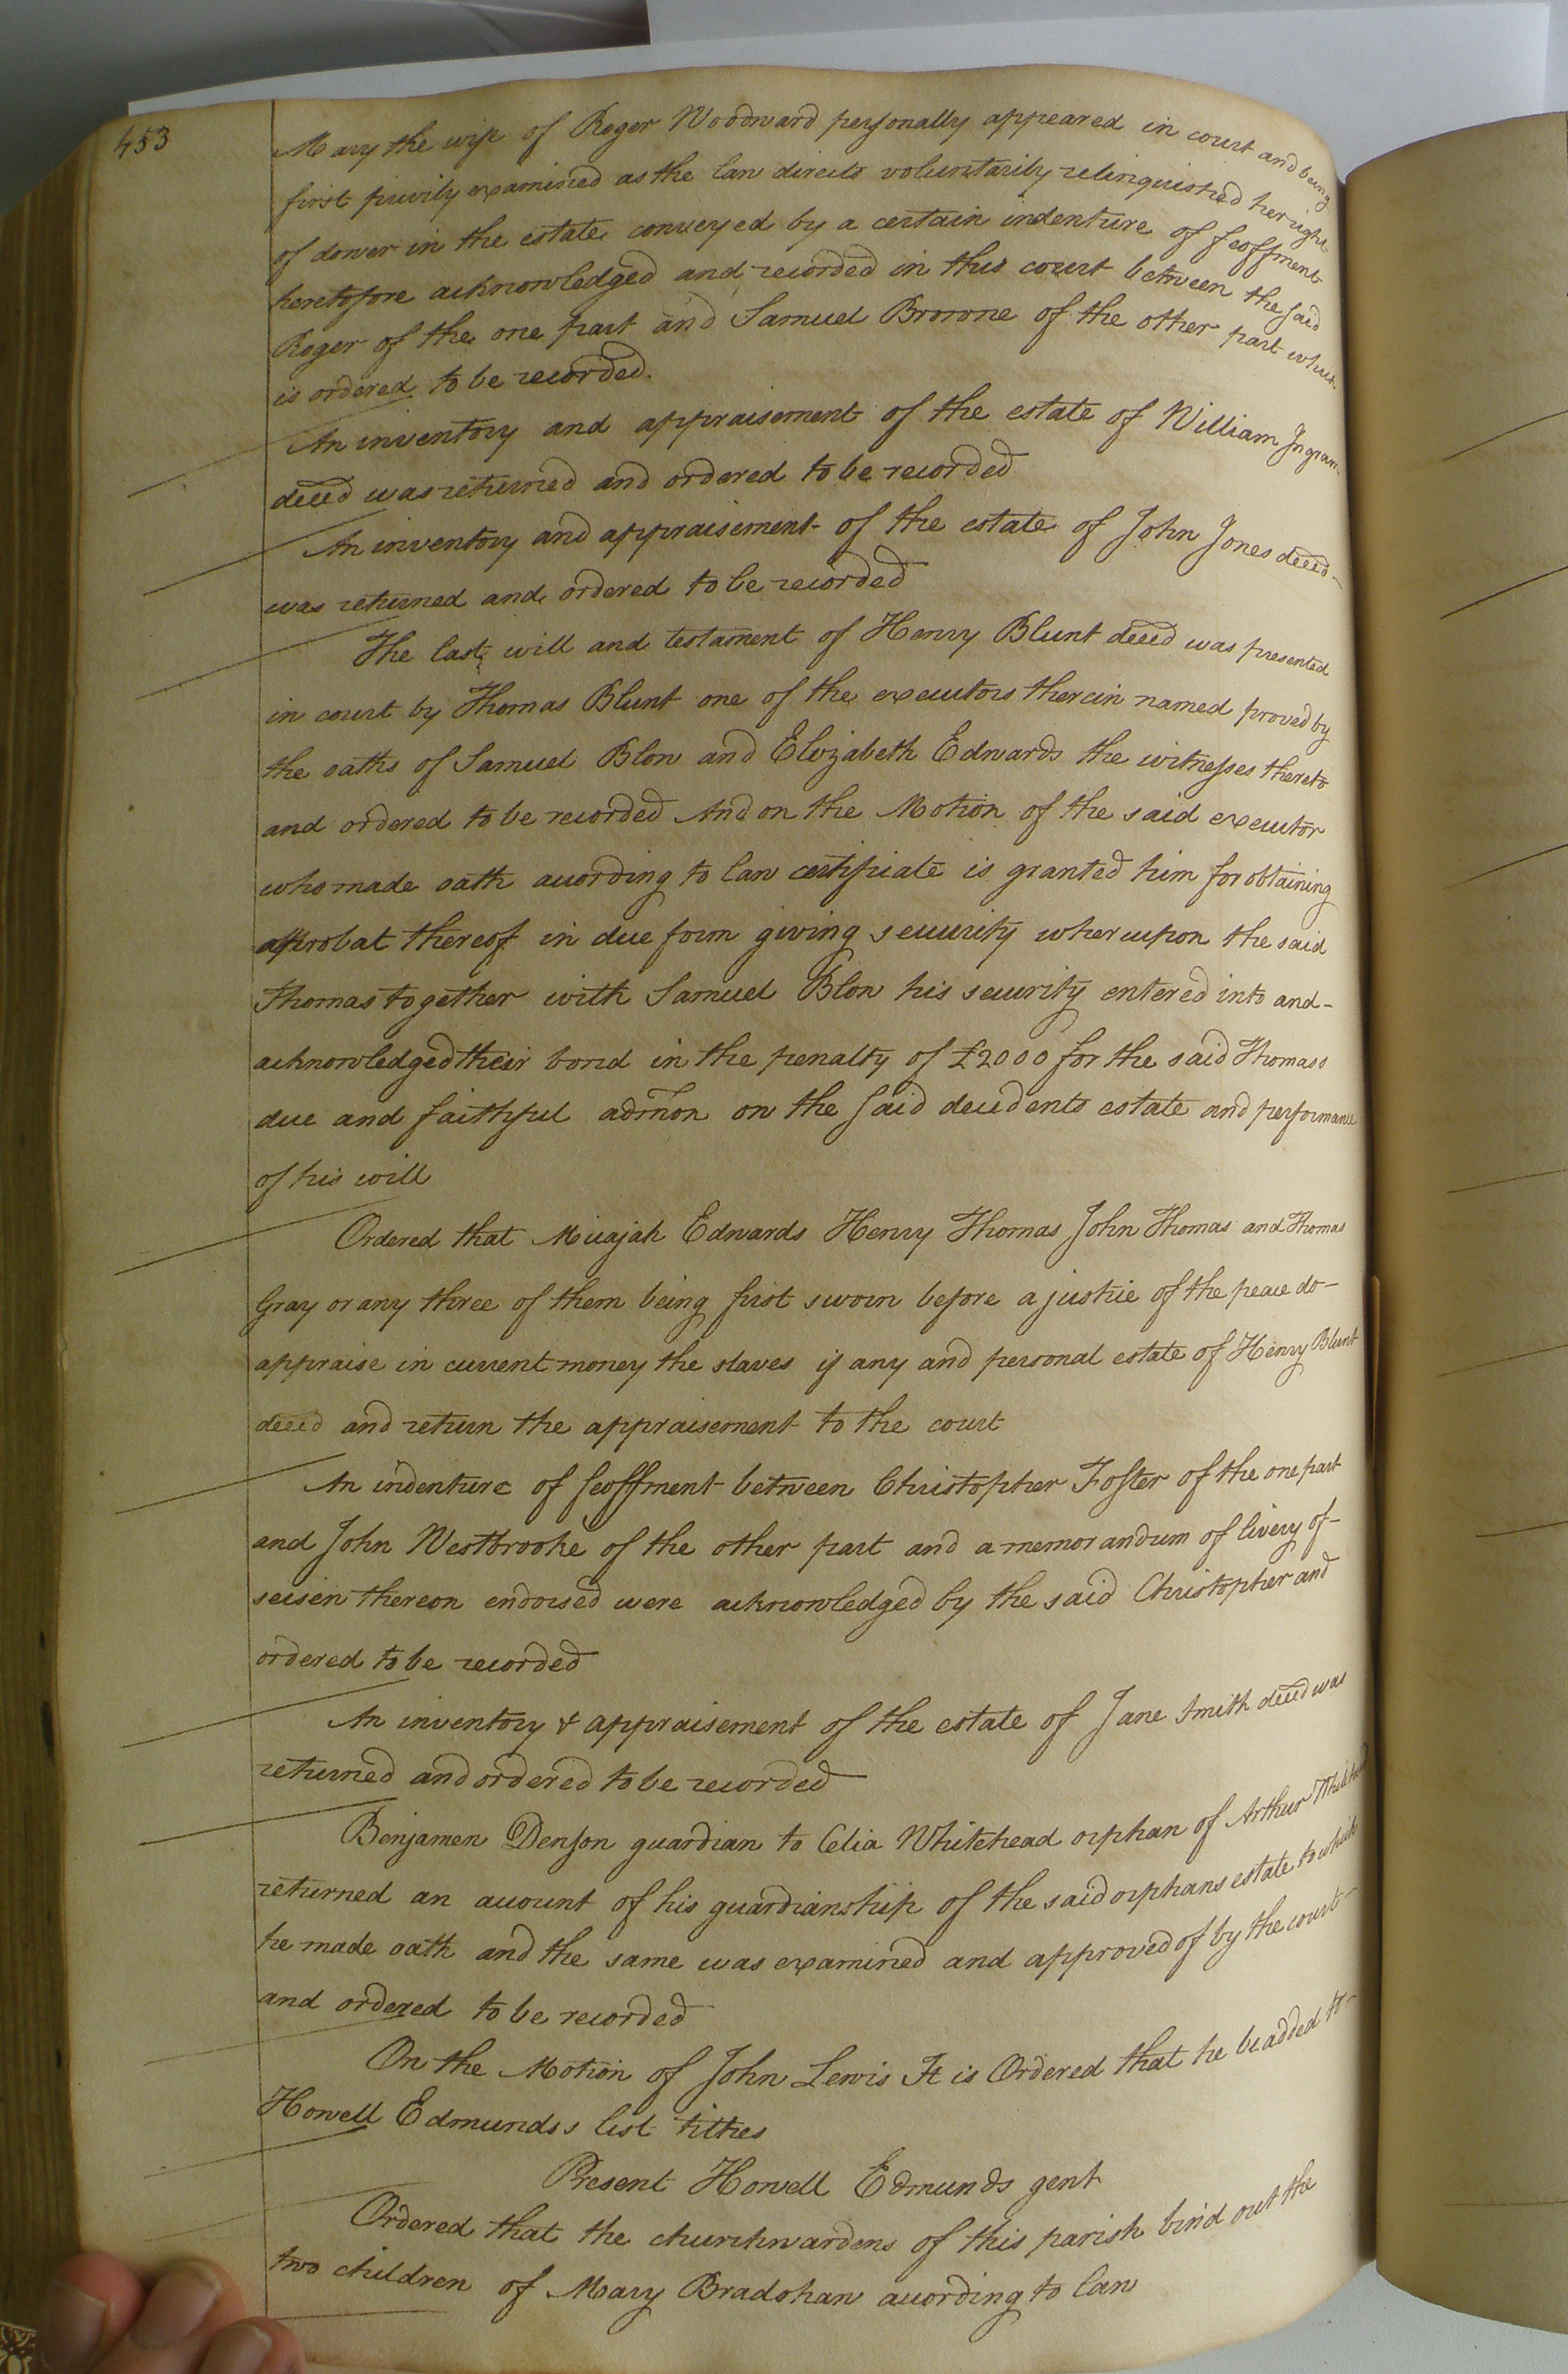 453
Mary the wife of Roger Woodward personally appeared in court and being
first privily examined as the law directs voluntarily relinquished her right
of dower in the estate conveyed by a certain indenture of feoffment
heretofore acknowledged and recorded in this court between the said
Roger of the one part and Samuel Browne of the other part which
is ordered to be recorded.
An inventory and appraisement of the estate of William Ingram
deced was returned and ordered to be recorded
An inventory and appraisement of the estate of John Jones deced
was returned and ordered to be recorded
The last will and testament of Henry Blunt deced was presented
in court by Thomas Blunt one of the executors therein named proved by
the oaths of Samuel Blow and Elizabeth Edwards the witnesses thereto
and ordered to be recorded And on the Motion of the said executor
who made oath according to law certificate is granted him for obtaining
a probat thereof in due form giving security whereupon the said
Thomas together with Samuel Blow his security entered into and
acknowledged their bond in the penalty of £2000 for the said Thomass
due and faithful admon on the said decedents estate and performance
of his will
Ordered that Micajah Edwards Henry Thomas John Thomas and Thomas
Gray or any three of them being first sworn before a justice of the peace do
appraise in current money the slaves if any and personal estate of Henry Blunt
deced and return the appraisement to the court
An indenture of feoffment between Christopher Foster of the one part
and John Westbrooke of the other part and a memorandum of livery of
seisen thereon endorsed were acknowledged by the said Christopher and
ordered to be recorded
An inventory & appraisement of the estate of Jane Smith deced was
returned and ordered to be recorded
Benjamen Denson guardian to Celia Whitehead orphan of Arthur Whitehead
returned an account of his guardianship of the said orphans estate to which
he made oath and the same was examined and approved of by the court
and ordered to be recorded
On the Motion of John Lewis It is Ordered that he be added to
Howell Edmunds s list tithes
Present Howell Edmunds gent
Ordered that the churchwardens of this parish bind out the
two children of Mary Bradshaw according to law